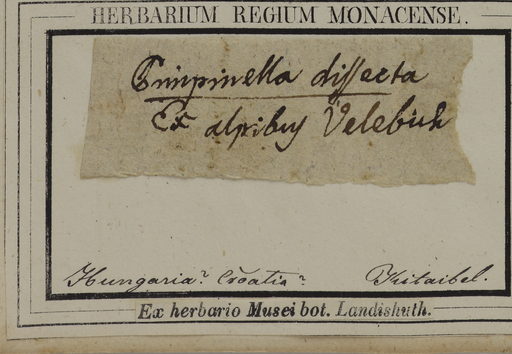 HERBARIUM REGIUM MONACENSE.
Pimpinella dissecta
Ex alpibus Velebich
Hungaria? Croatia? Kitaibel.
Ex herbario Musei bot. Landishuth.